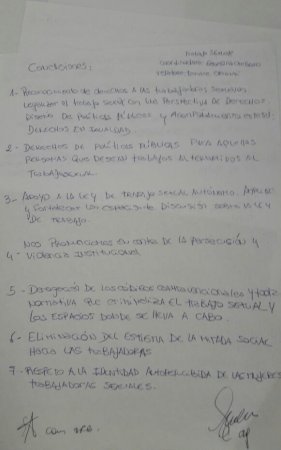 Trabajo Sexual
Coordinadora:
Conclusiones:
1- Reconocimiento de derechos a las trabajadoras sexuales
Legalizar el trabajo sexual con una Perspectiva de Derechos
Diseño de Políticas Públicas y Acompañamiento estatal.
Derechos en Igualdad.
2- Derechos de Políticas Públicas para aquellas
Personas que deseen trabajos alternativos al
Trabajo sexual
3- Apoyo a la ley de trabajo sexual Autónomo. Ampliar
y fortalecer los espacios de Discusión sobre la ley
De trabajo.
Nos Pronunciamos en contra de la persecución y
4- Violencia Institucional
5- Derogación de los códigos contravencionales y toda
normativa que criminaliza EL trabajo sexual y
los espacios donde se lleva A cabo.
6- Eliminación del Estigma de la mirada social
Hacia las trabajadoras
7- Respeto A la identidad Autopercibida de las mujeres
trabajadoras sexuales.